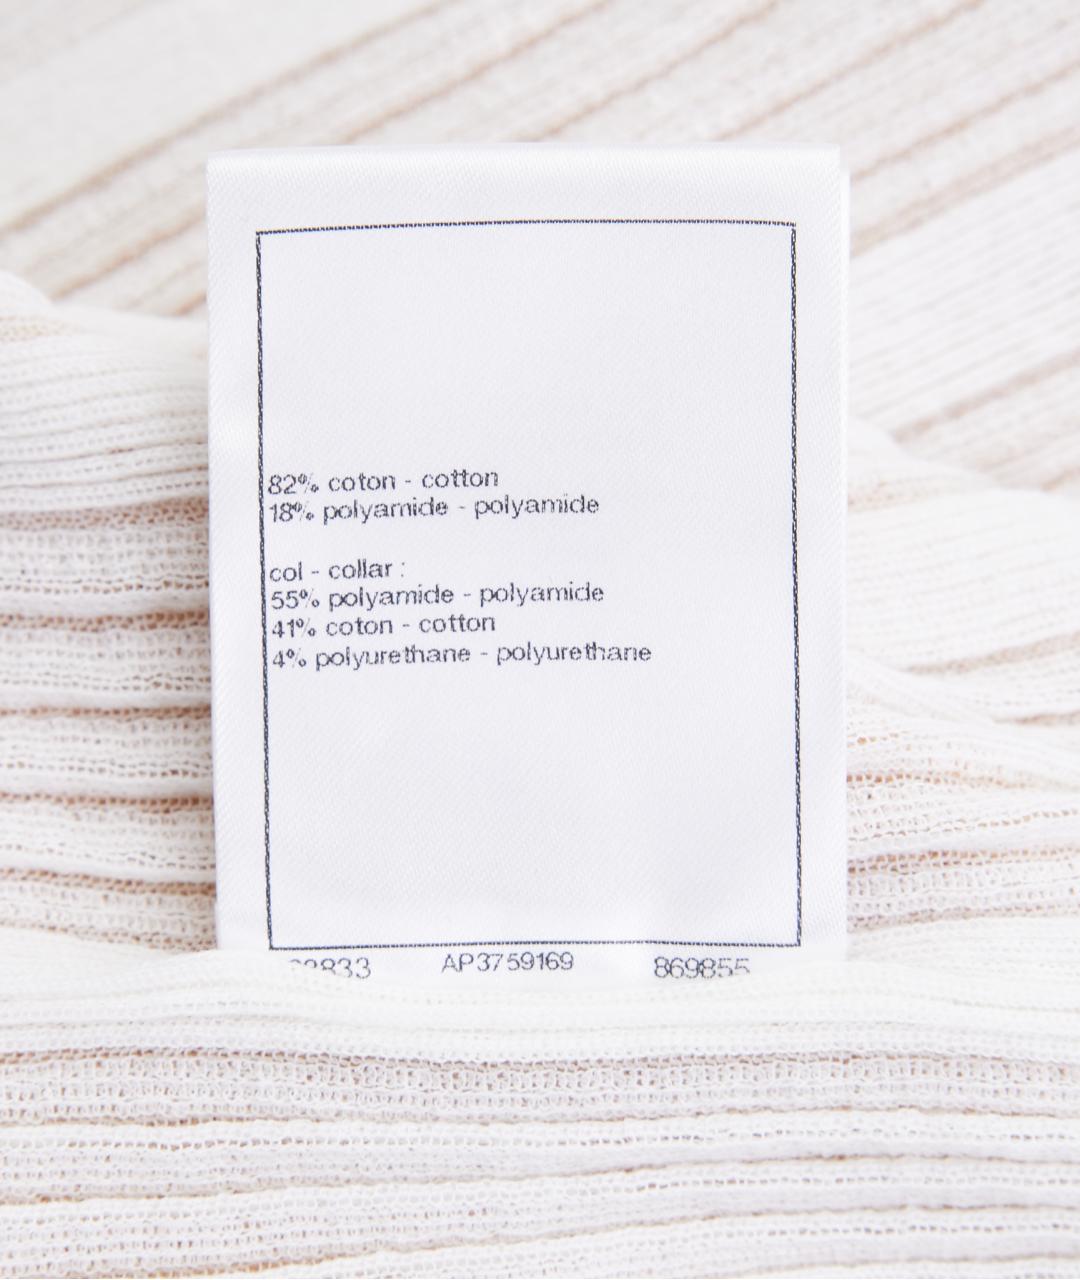 82% coton - cotton
18% polyamide - polyamide
col - collar :
55% polyamide - polyamide
41% coton - cotton
4% polyurethane - polyurethane
AP3759169 869855